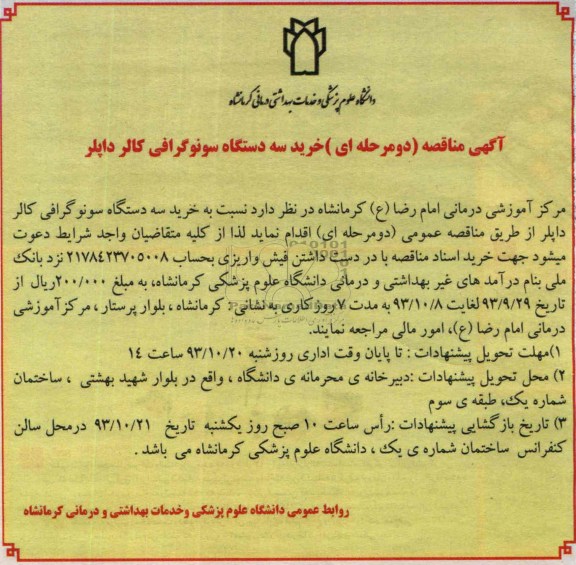 دانشگاه علوم پزشکی و خدمات بهداشتی درمانی کرمانشاه
آگهی مناقصه (دومرحله ای )خرید سه دستگاه سونوگرافی کالر داپلر
مرکز آموزشی درمانی امام رضا (ع) کرمانشاه در نظر دارد نسبت به خرید سه دستگاه سونوگرافی کالر
داپلر از طریق مناقصه عمومی (دومرحله ای) اقدام نماید لذا از کلیه متقاضیان واجد شرایط دعوت
میشود جهت خرید اسناد مناقصه با در دست داشتن فیش واریزی بحساب ۲۱۷۸۴۲۳۷۰۵۰۰۸ نزد بانک
ملی بنام درآمد های غیر بهداشتی و درمانی دانشگاه علوم پزشکی کرمانشاه، به مبلغ ۲۰۰/۰۰۰ریال از
تاریخ ۹۳/۹/۲۹ لغایت ۹۳/۱۰/۸ به مدت ۷ روز کاری به نشانی: کرمانشاه ، بلوار پرستار ، مرکزآموزشی
درمانی امام رضا (ع)، امور مالی مراجعه نمایند.
۱)مهلت تحویل پیشنهادات : تا پایان وقت اداری روزشنبه ۹۳/۱۰/۲۰ ساعت ۱۴
۲) محل تحویل پیشنهادات :دبیرخانه ی محرمانه ی دانشگاه ، واقع در بلوار شهید بهشتی ، ساختمان
شماره یک، طبقه ی سوم
۳) تاریخ بازگشایی پیشنهادات :رأس ساعت ۱۰ صبح روز یکشنبه تاریخ ۹۳/۱۰/۲۱ درمحل سالن
کنفرانس ساختمان شماره ی یک ، دانشگاه علوم پزشکی کرمانشاه می باشد .
روابط عمومی دانشگاه علوم پزشکی وخدمات بهداشتی و درمانی کرمانشاه